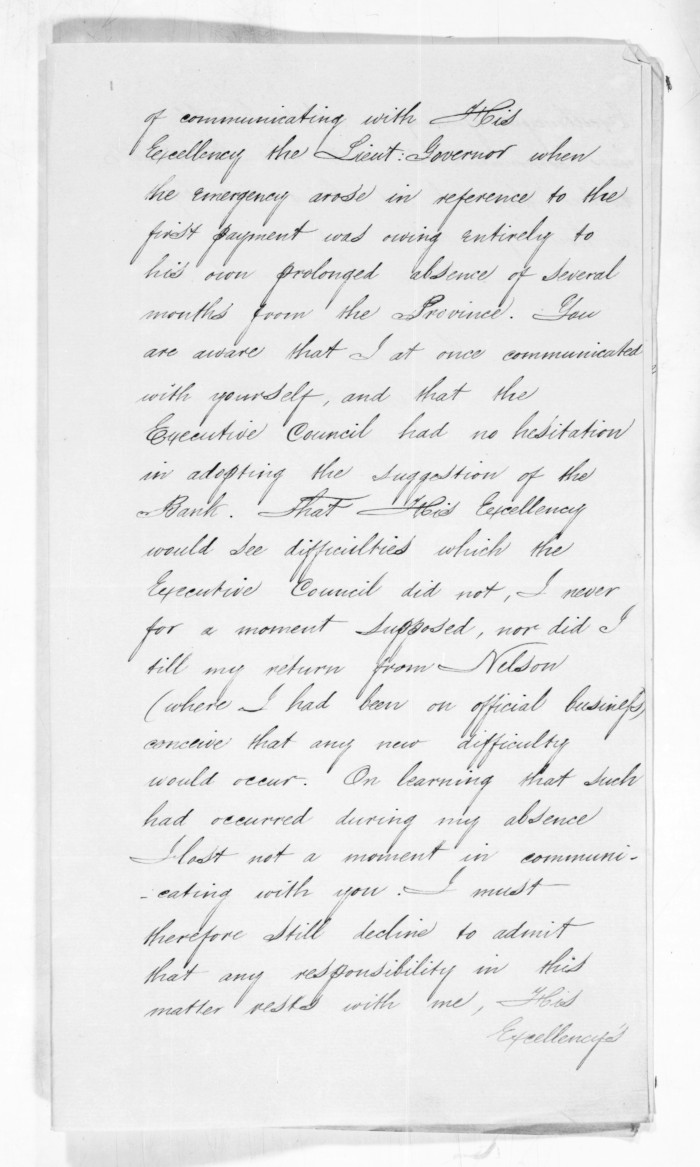 of communicating with His
Excellency the Lieut: Governor when
the emergency arose in reference to the
first payment was owing entirely to
his own prolonged absence of several
months from the Province. You
are aware that I at once communicated
with yourself, and that the
Executive Council had no hesitation
in adopting the suggestion of the
Bank. That His Excellency
would see difficulties which the
Executive Council did not, I never
for a moment supposed, nor did I
till my return from Nelson
(where I had been on official business)
conceive that any new difficulty
would occur. On learning that such
had occurred during my absence
I lost not a moment in communi-
-cating with you. I must
therefore still decline to admit
that any responsibility in this
matter rests with me, His
Excellency's